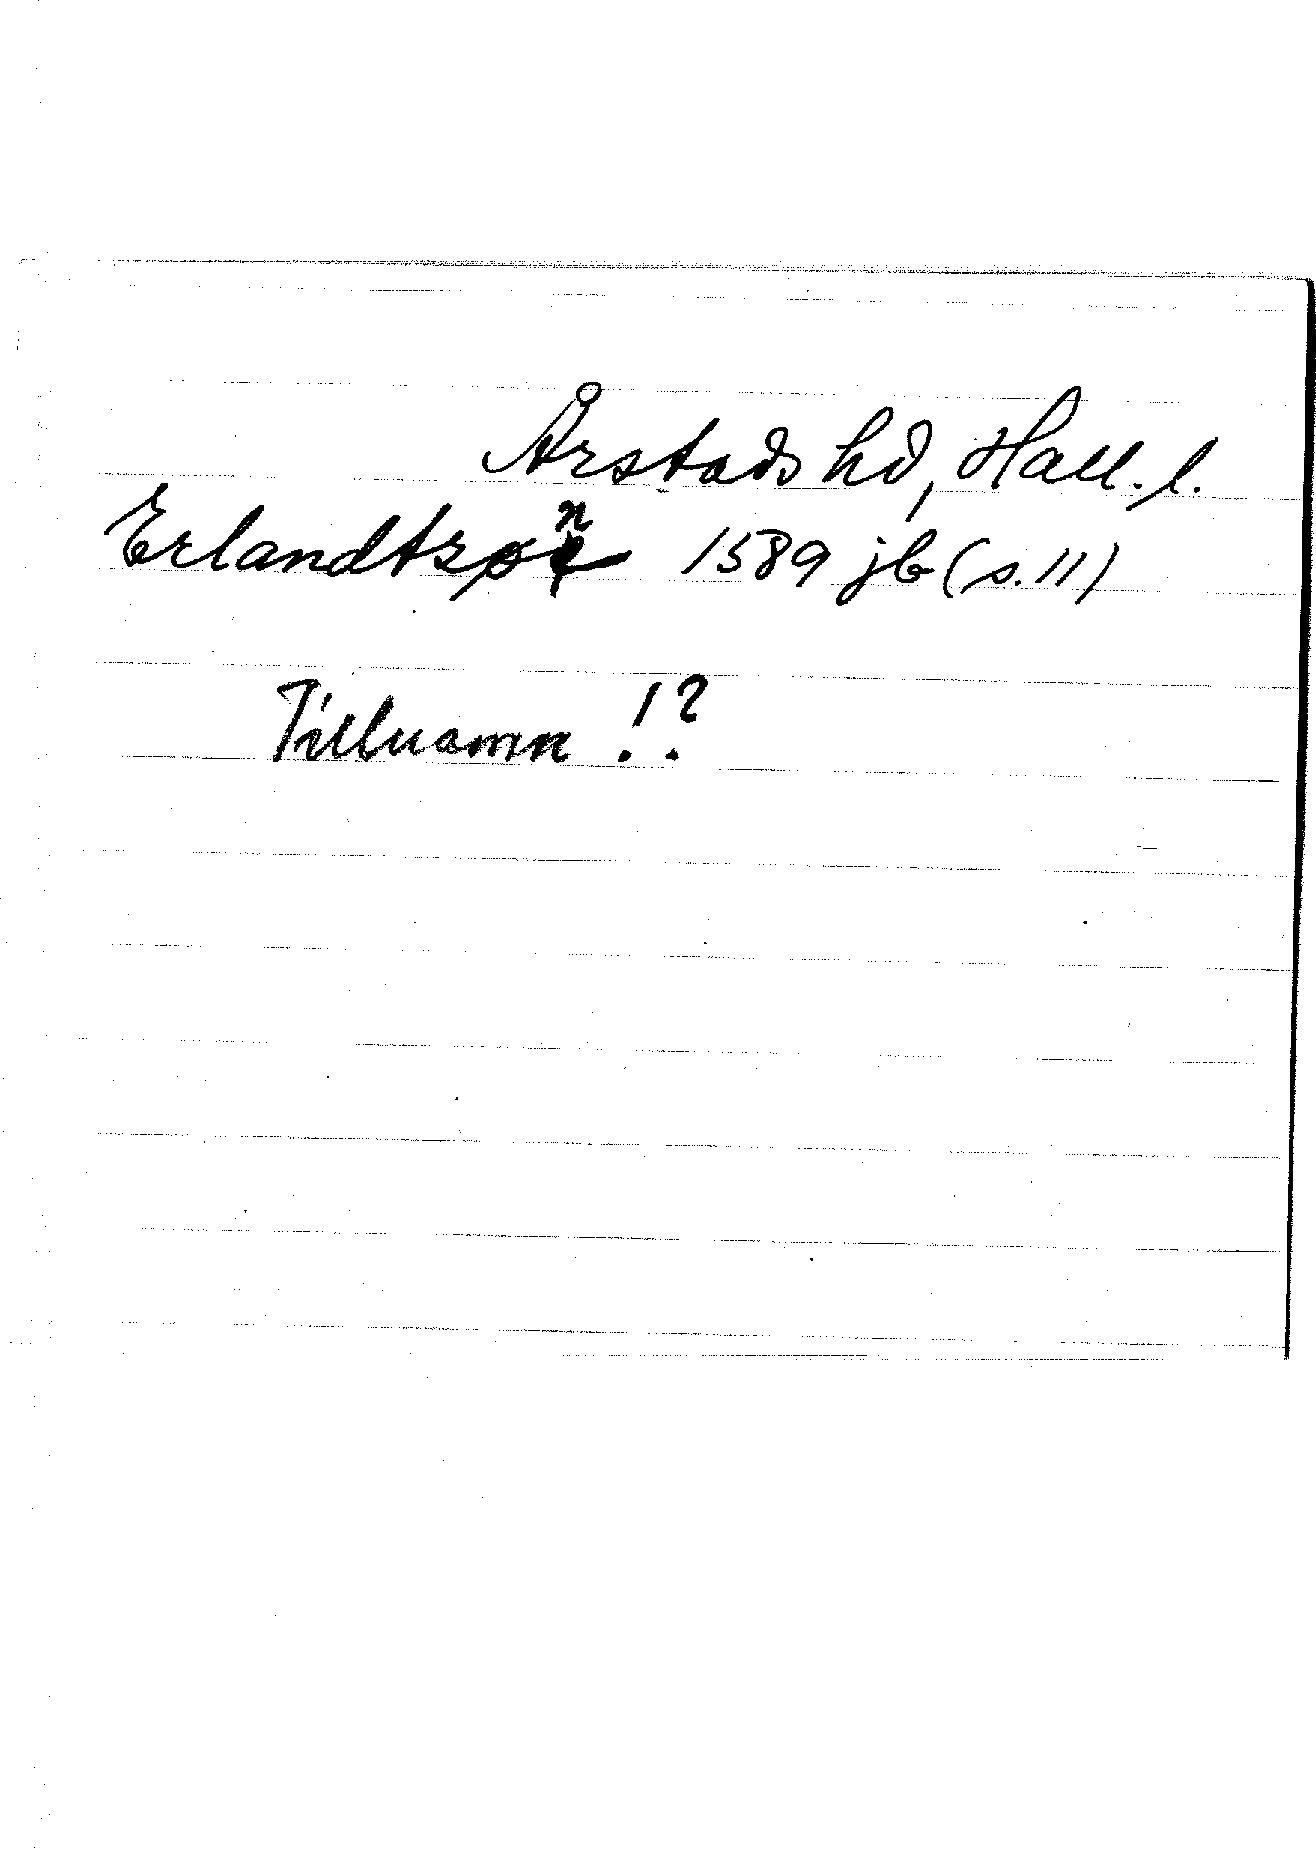 Årstads hd, Hall. l.
Erlandtzøn 1589 jb (s. 11)
Tillnamn!?